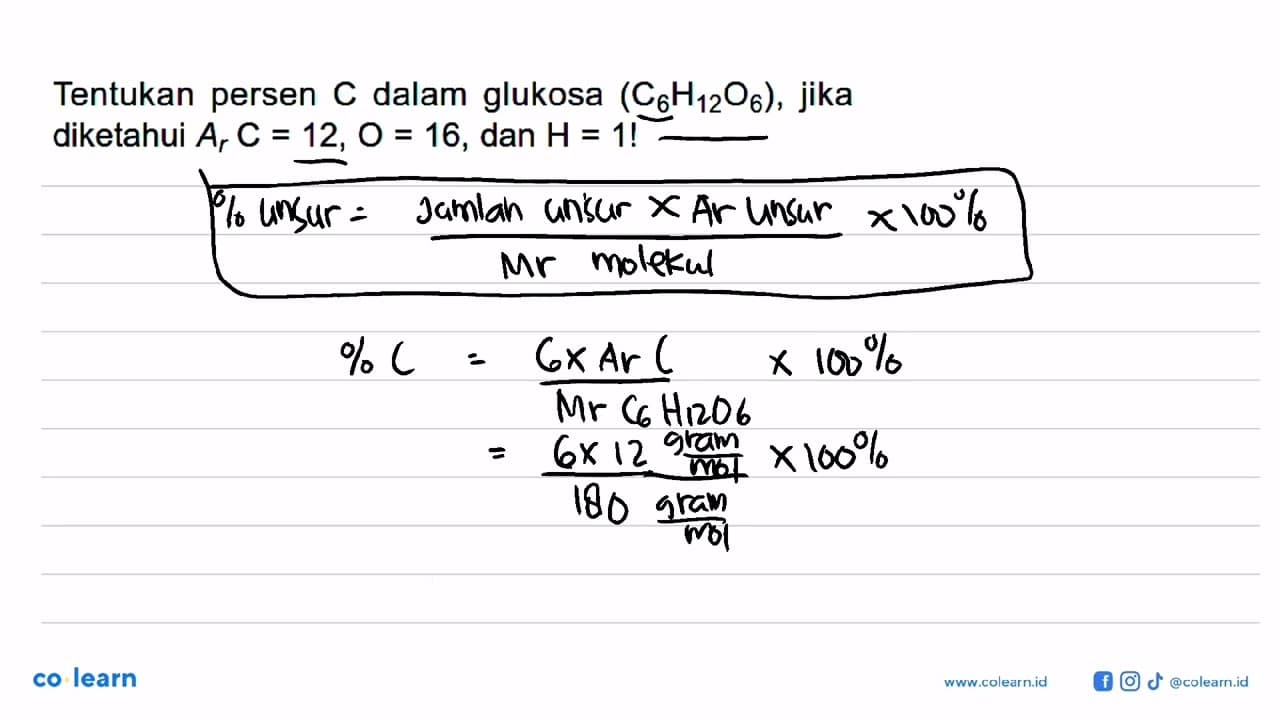 Tentukan persen C dalam glukosa (C6H12O6), jika
diketahui Ar C = 12, O = 16, dan H = 1!
% unsur = Jamlah unsur x Ar unsur x 100%
Mr molekul
% C = 6 x Ar C x 100%
Mr C6H12O6
= 6 x 12 gram/mol x 100%
180 gram/mol
co learn
www.colearn.id @colearn.id